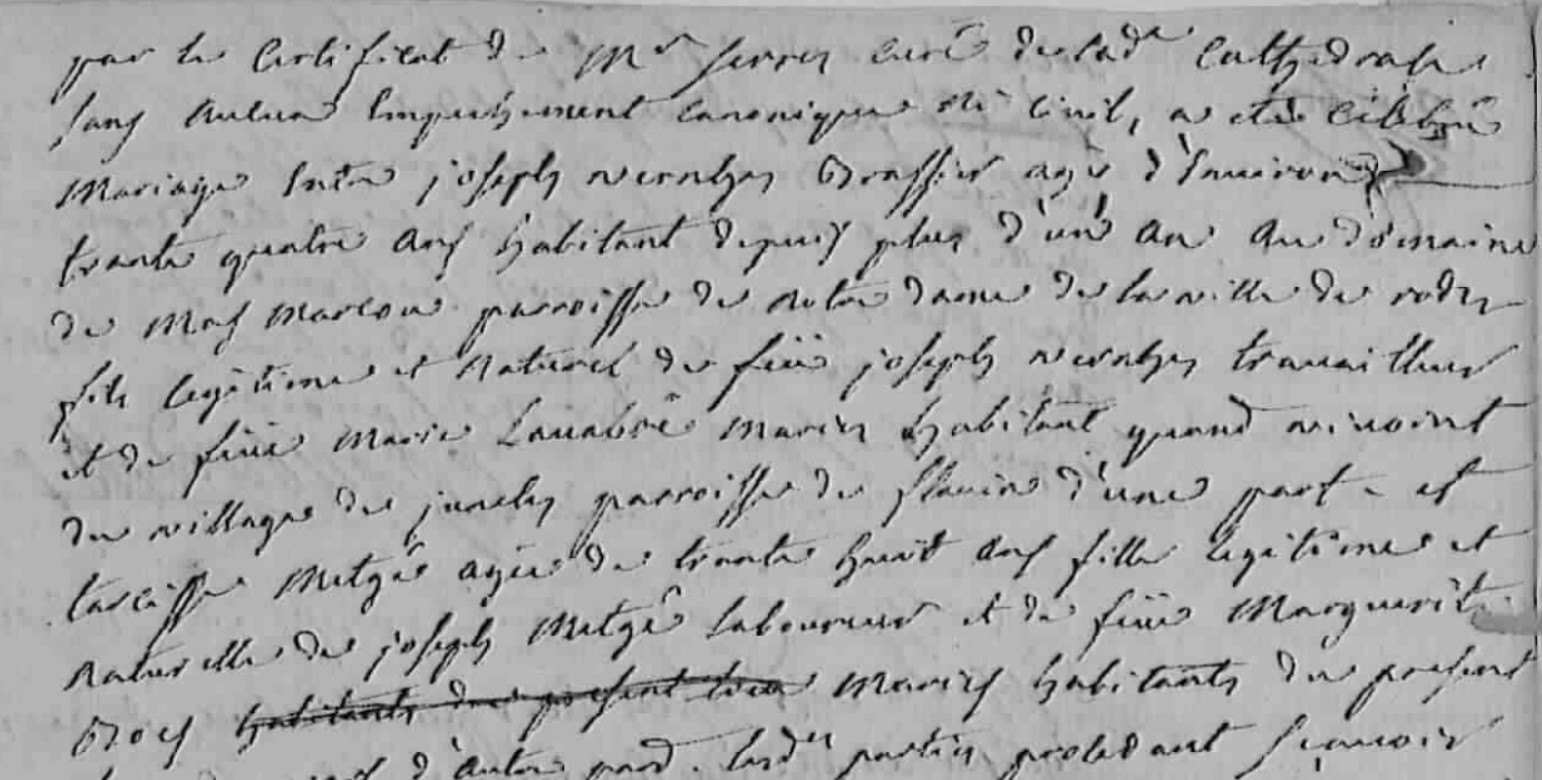 par le Certificat de Mr Serres curé de lade Cathedralle
sans aucun Empechement canonique ni Civil, a eté Célébré
Mariage Entre joseph vernhes Brassier agé d'Environ
trante quatre ans habitant depuis plus d'un an au domaine
de Mas Marcou parroisse de notre dame de la ville de rodez
fils legitime et naturel de feüe joseph vernhes travailleur
et de feüe Marie Lavabre Maries habitant quand vivoint
du village de parroisse de flavin d'une part - et
Metgé agée de trante huit ans fille legitime et
Naturelle de joseph Metgé laboureur et de feüe Marguerite
Bocs habitants du present lieu Mariés habitants du present
d'autre part. lesd. parties procedant